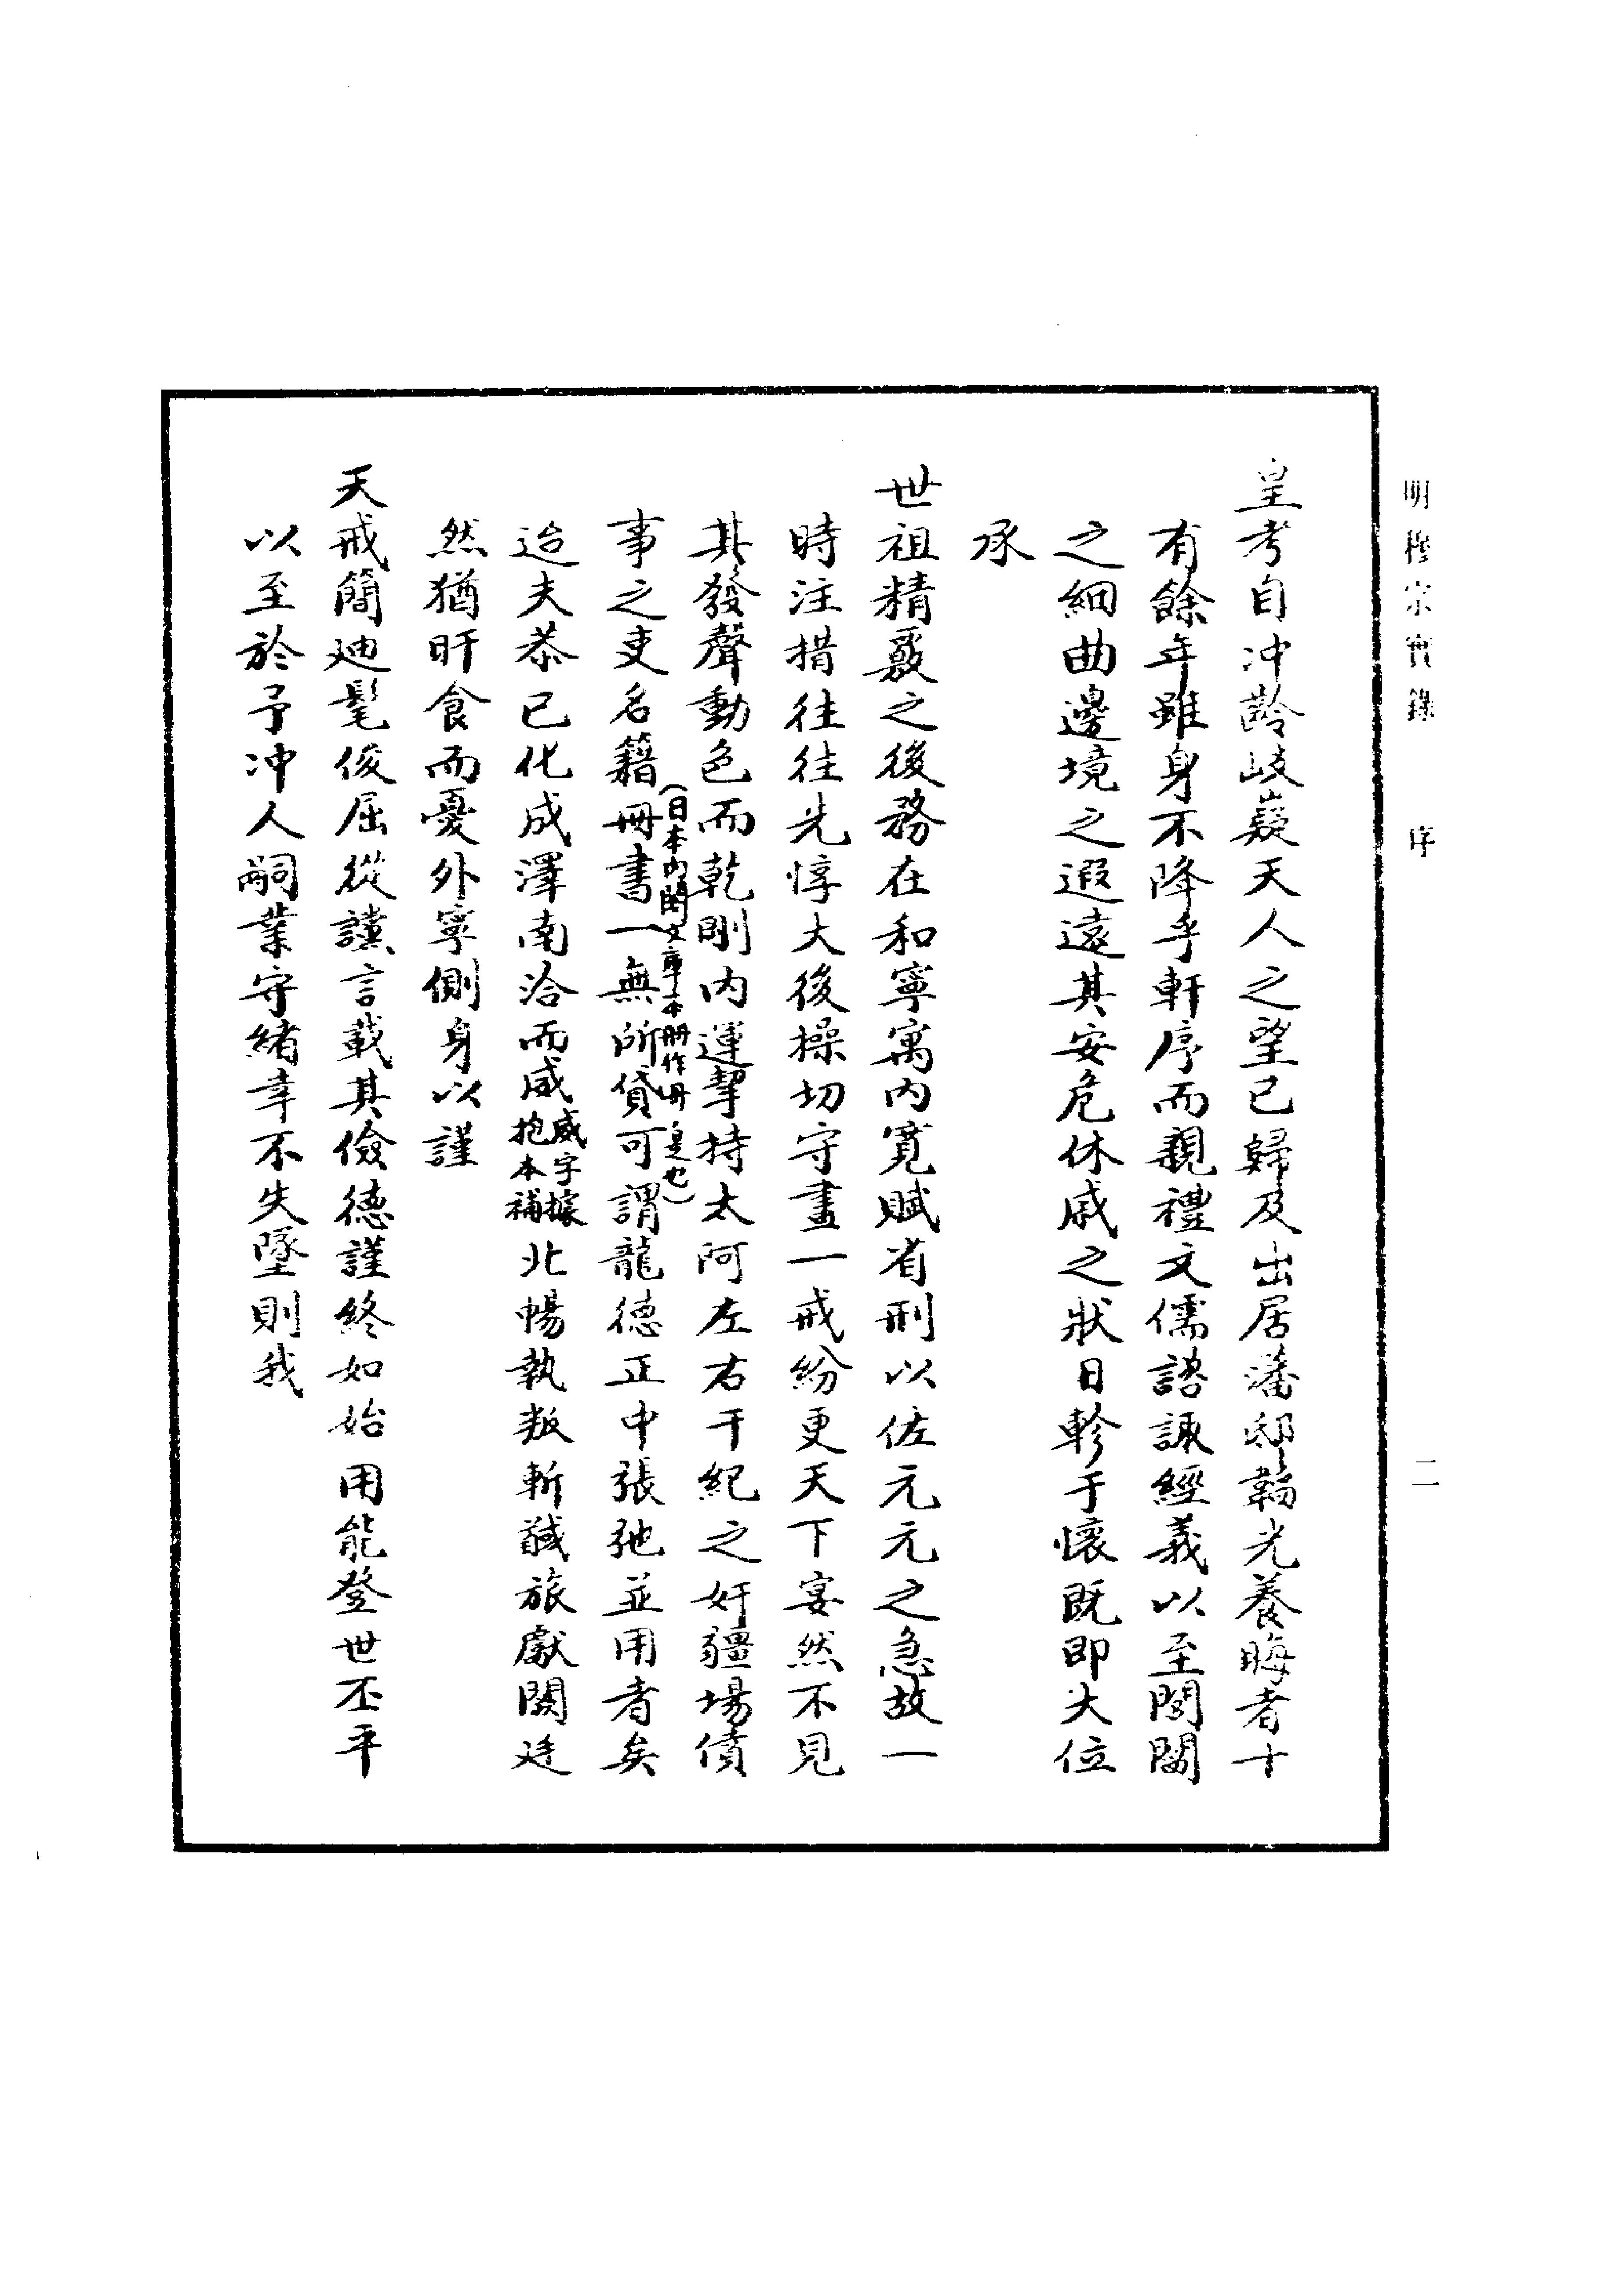 明穆宗實錄　序　二
皇考自冲齡岐嶷天人之望已歸及出居藩邸韜光養晦者十
有餘年雖身不降乎軒序而親禮文儒諮諏經義以至閭閻
之細曲邊境之遐遠其安危休戚之狀日軫于懷既即大位
承
世祖精覈之後務在和寧寓内寬賦省刑以佐元元之急故一
時注措往往先惇大後操切守畫一戒紛更天下宴然不見
其發聲動色而乾剛内運挈持太阿左右干紀之奸疆場僨
事之吏名籍冊書一無所貸可謂龍德正中張弛並用者矣
(日本内閣文庫本冊作丹是也)
迨夫恭已化成澤南洽而威威字據抱本補北暢執叛斬馘旅獻闕廷
然猶旰食而憂外寧側身以謹
天戒簡廸髦俊屈從讜言載其儉德謹終如始用能登世丕平
以至於予冲人嗣業守緒幸不失墜則我